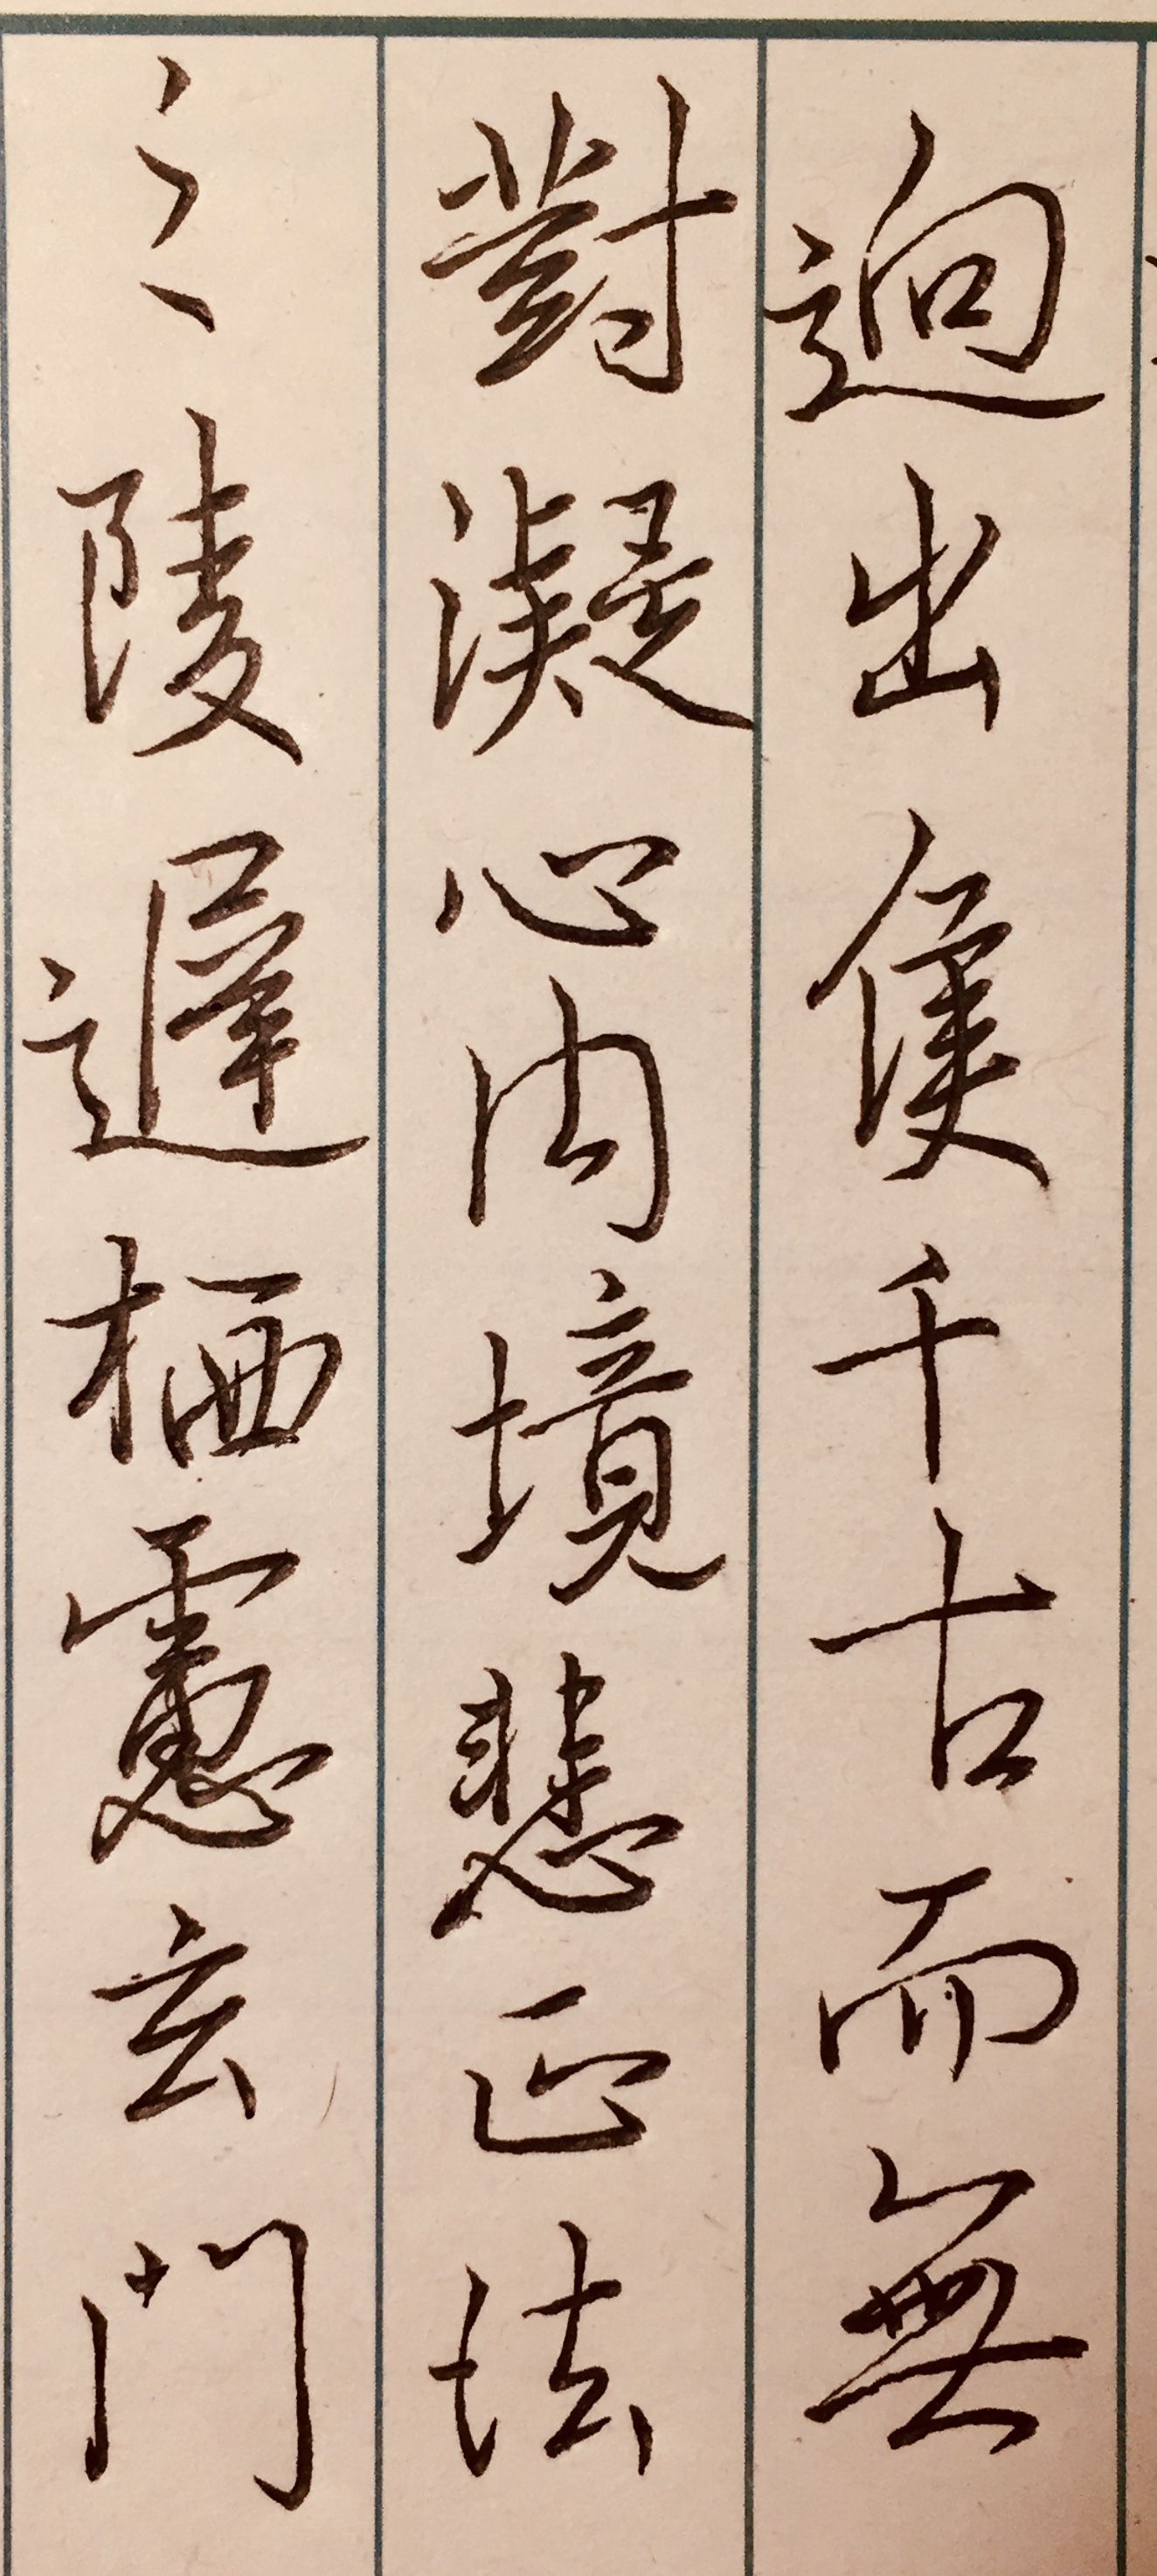 迥出隻千古而無
對凝心内境悲正法
之陵遲栖慮玄門